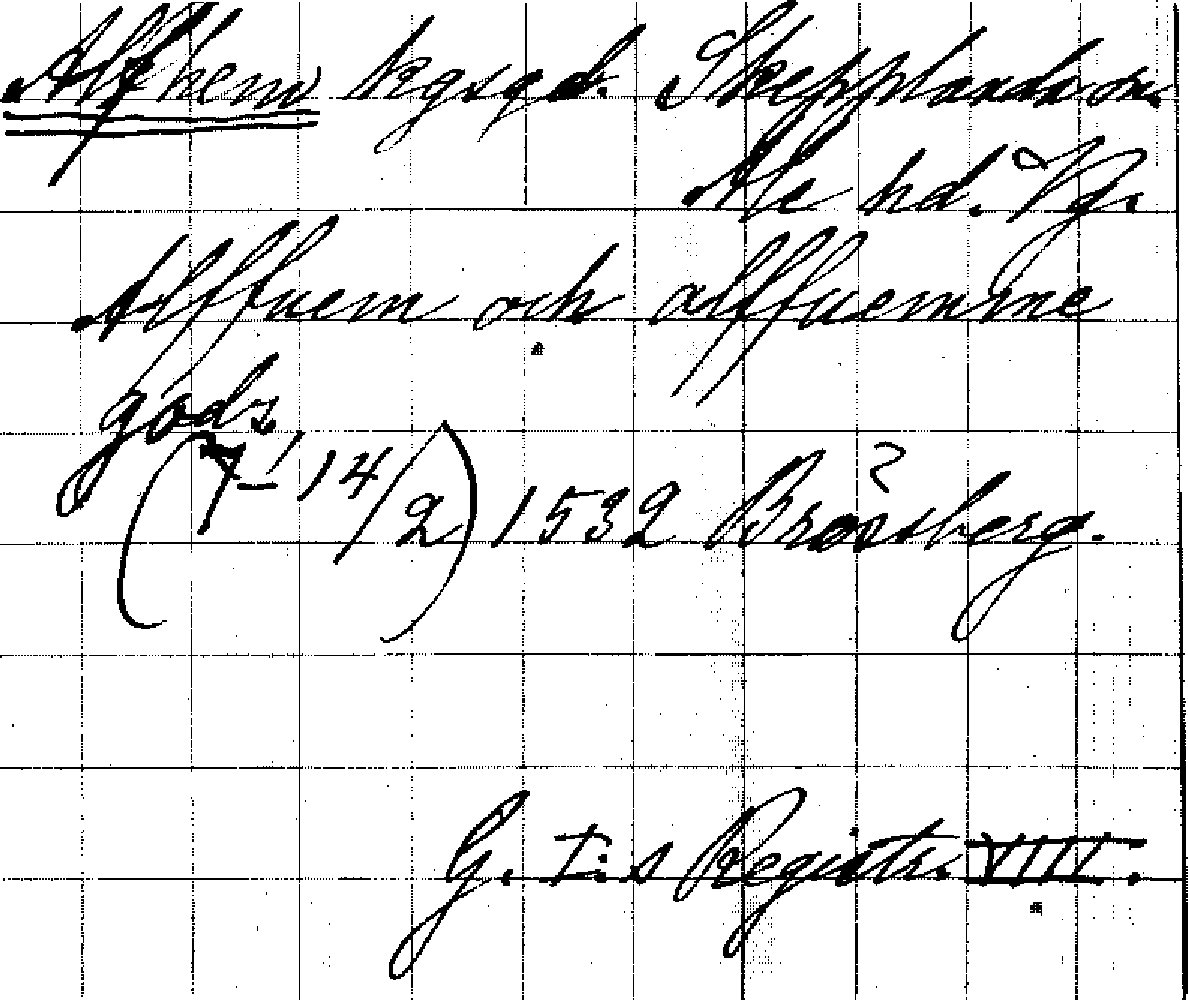 Alfhem kgsgd. Skepplanda sn.
Ale hd. Vg.
Alffuem och alffuemme
gods
(7-14/2) 1532 Brösberg.
G. I:s Registr. VIII.